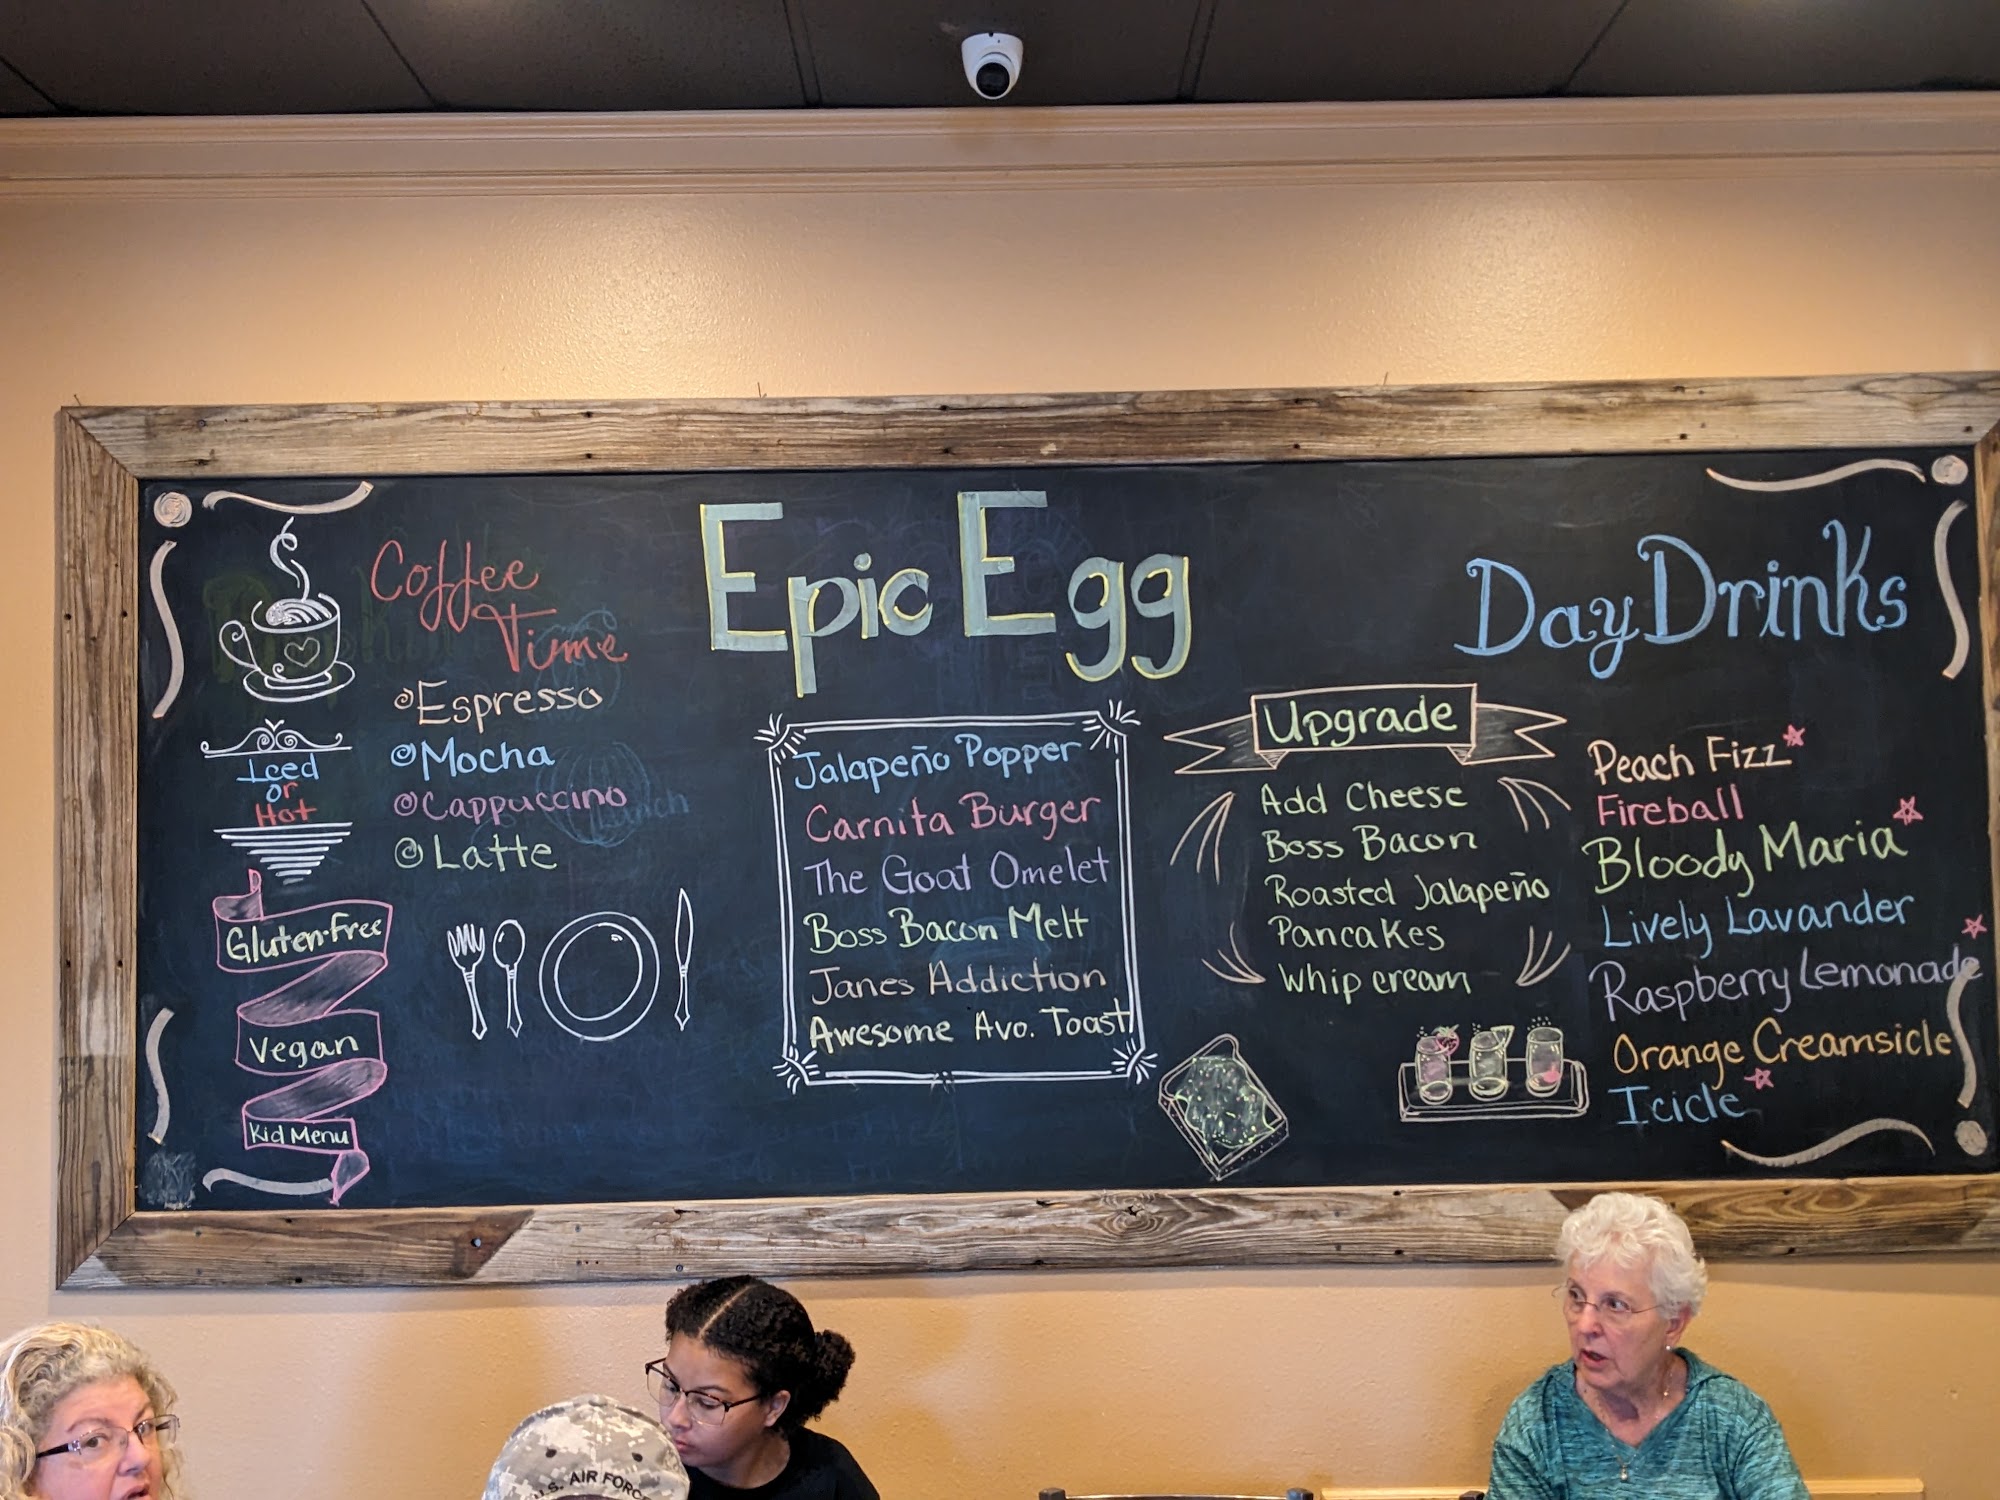 Coffee
Time
Espresso
Mocha
Cappuccino
Latte
Iced
or
Hot
Gluten-Free
Vegan
Kid Menu
Epic Egg
Jalapeño Popper
Carnita Burger
The Goat Omelet
Boss Bacon Melt
Janes Addiction
Awesome Avo. Toast
Upgrade
Add Cheese
Boss Bacon
Roasted Jalapeño
Pancakes
Whip cream
Day Drinks
Peach Fizz
Fireball
Bloody Maria
Lively Lavander
Raspberry Lemonade
Orange Creamsicle
Icicle
U.S. AIR FORCE